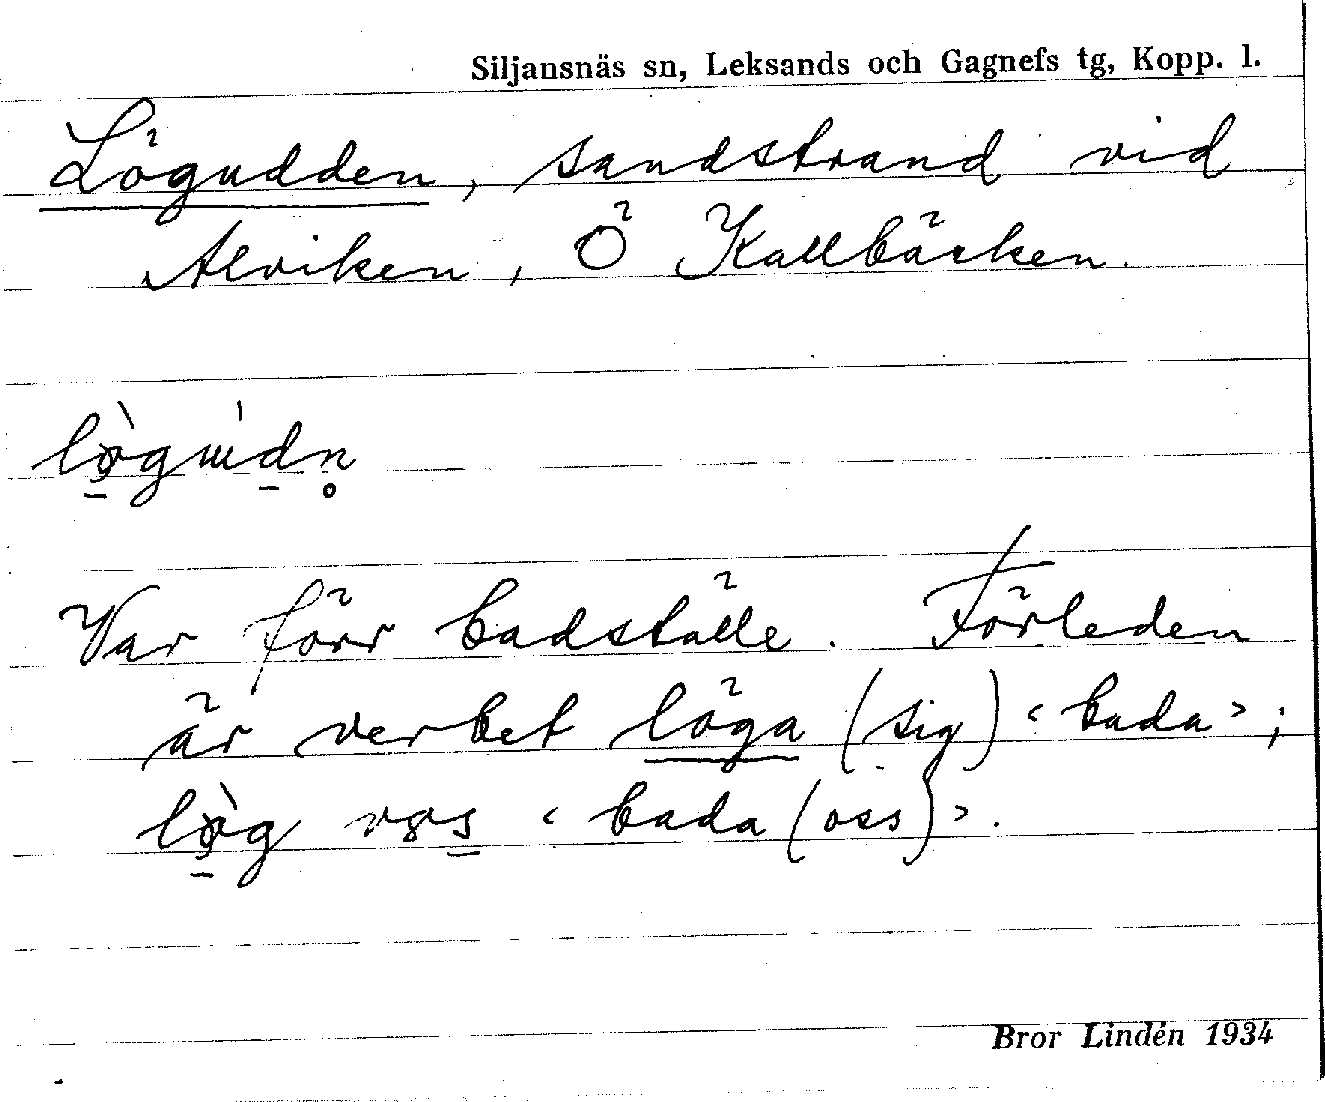 Siljansnäs sn, Leksands och Gagnefs tg, Kopp. l.
Lögudden, sandstrand vid
Alviken, Ö Kallbäcken.
Var förr badställe. Förleden
är verbet löga (sig) ‹bada›;
‹bada (oss)›.
Bror Lindén 1934